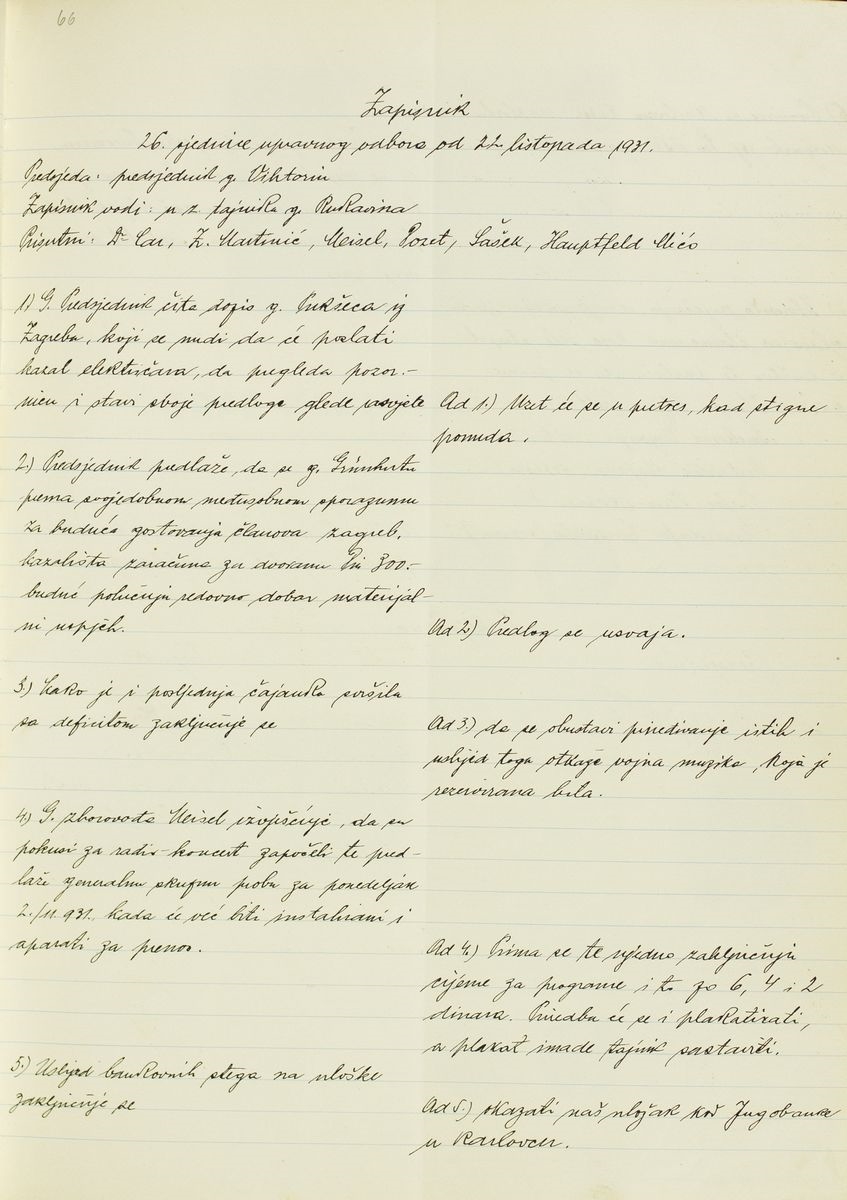 66
Zapisnik
26. sjednice upravnog odbora od 22. listopada 1931.
Predsjeda: predsjednik g. Vihtorin
Zapisnik vodi: u z. tajnika g. Rukavina
Prisutni: Dr Car, Z. Martinić, Meisel, Pozet, Sašek, Hauptfeld Mićo
1) G. Predsjednik čita dopis g. Pukšeca iz
Zagreba, koji se nudi da će poslati
kazal električara, da pregleda pozor.-
nicu i stavi svoje predloge glede rasvjete
Ad 1.) Uzet će se u pretres, kad stigne
ponuda.
2.) Predsjednik predlaže, da se g. Grünhutu
prema svojedobnom međusobnom sporazumu
za buduća gostovanja članova zagreb.
kazališta zaračuna za dvoranu Din 300.-
budući polučuju redovno dobar materijal-
ni uspjeh.
Ad 2) Predlog se usvaja.
3.) Kako je i posljednja čajanka svršila
sa deficitom zaključuje se
Ad 3.) da se obustavi priređivanje istih i
uslijed toga otkaže vojna muzika, koja je
rezervirana bila.
4.) G. zborovođa Meisel izvješćuje, da su
pokusi za radio-koncert započeli te pred-
laže generalnu skupnu probu za ponedeljak
2./11.931. kada će već biti instalirani i
aparati za prenos.
Ad 4.) Prima se te ujedno zaključuju
cijene za programe i to po 6, 4 i 2
dinara. Priedba će se i plakatirati,
a plakat imade tajnik sastaviti.
5.) Uslijed bankovnih stega na uloške
zaključuje se
Ad 5.) otkazati naš uložak kod Jugobanke
u Karlovcu.